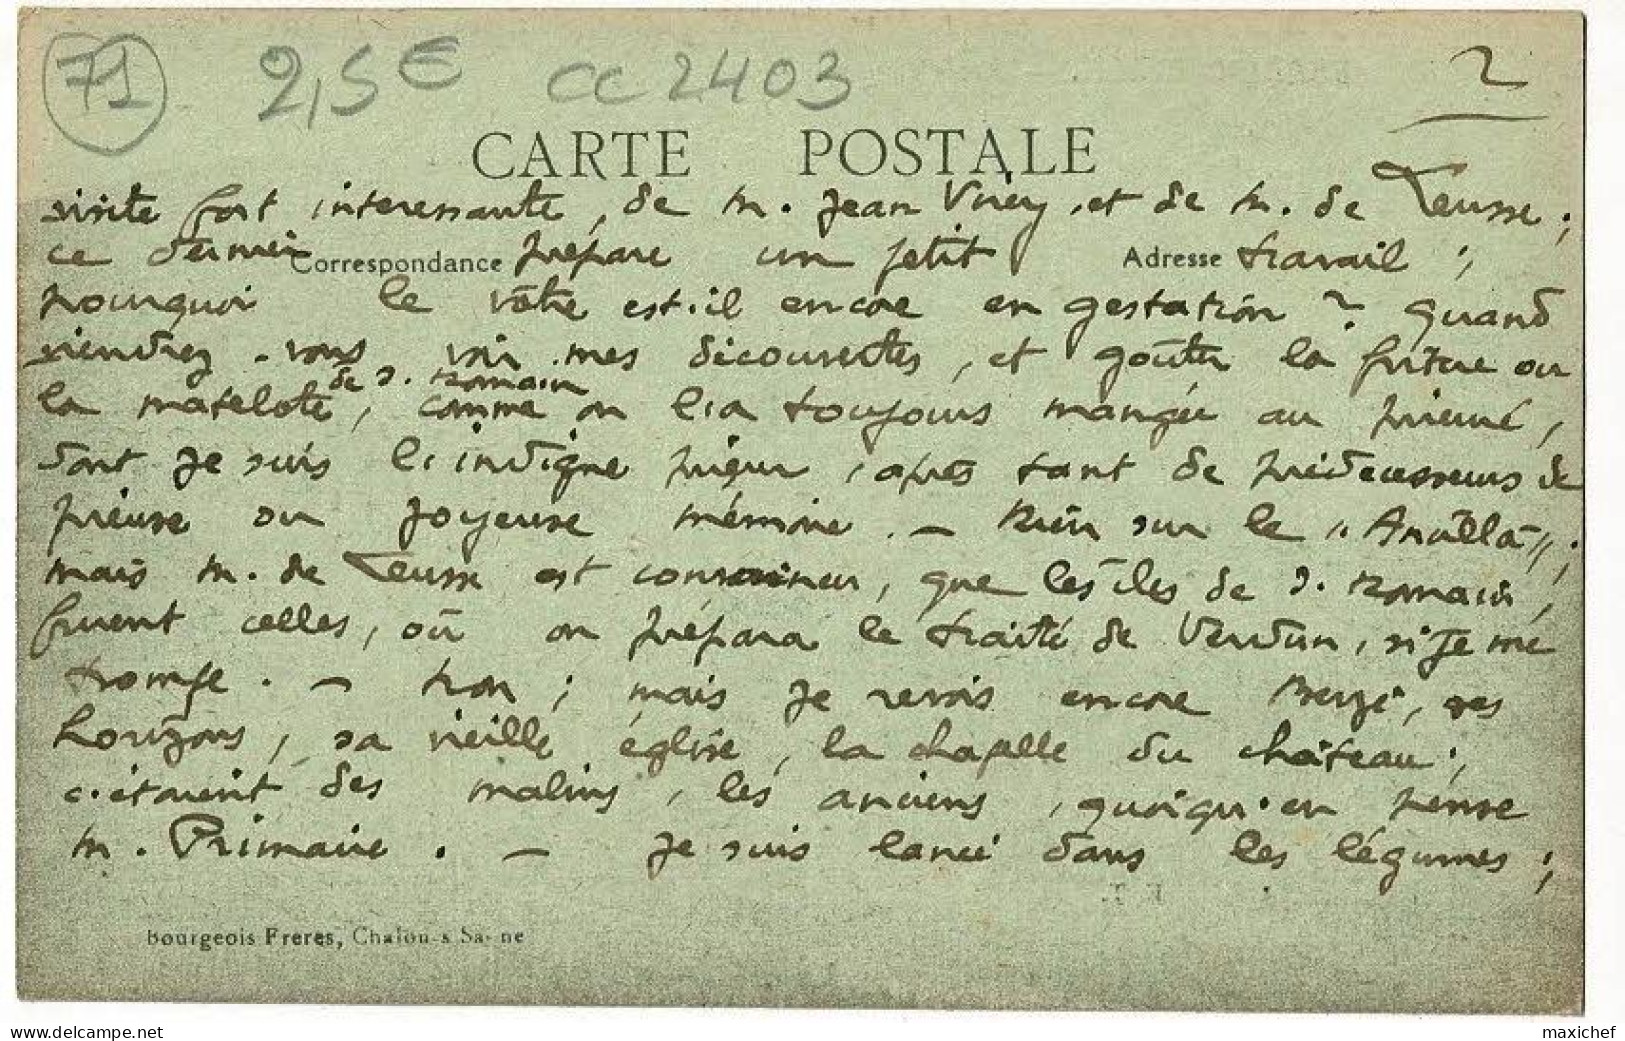 71 2,5€ CC 2403 2
CARTE POSTALE
visite fort interessante, de M. Jean Virey, et de M. de Leusse;
ce dernier prépare un petit travail;
Correspondance Adresse
pourquoi le vôtre est-il encore en gestation? Quand
viendrez-vous voir mes découvertes, et goûter la friture ou
la matelote de S. Romain, comme on l'a toujours mangée au prieuré,
dont je suis l'indigne prieur, après tant de prédécesseurs de
pieuse ou joyeuse mémoire. — Rien sur le "Ansilla";
mais M. de Leusse est convaincu, que les îles de S. Romain,
furent celles, où on prépara le traité de Verdun, si je me
trompe. — Non; mais je revois encore Berzé, ses
horizons, sa vieille église, la chapelle du château;
c'étaient des malins, les anciens, quoiqu'en pense
M. Primaire. — Je suis lancé dans les légumes;
Bourgeois Freres, Chalon-s Saône
www.delcampe.net
maxichef